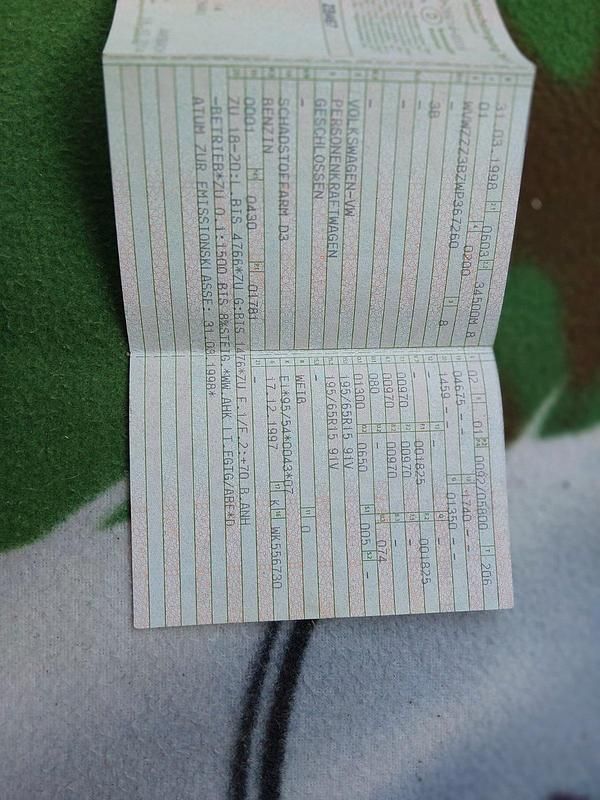 31.03.1998 0603 34500M 8
01 0200
WVWZZZ3BZWP367260 8
3B
-
-
VOLKSWAGEN-VW
PERSONENKRAFTWAGEN
GESCHLOSSEN
-
SCHADSTOFFARM D3
BENZIN
0001 0430 01781
ZU 18-20:L BIS 4766*ZU G:BIS 1476*ZU F.1/F.2:+70 B.ANH
-BETRIEB*ZU O.1:1500 BIS 8%STEIG.*WW AHK LT.EGTG/ABE*D
ATUM ZUR EMISSIONSKLASSE: 31.03.1998*
02 01 0092/05800 206
04675 - - 1740 - -
1459 - 01350 - -
001825 - 001825
00970 00970 -
00970 00970 - 074
080 - 005 -
01300 0650
195/65R15 91V
195/65R15 91V
-
-
WEIß 0
E1*95/54*0043*07
17.12.1997 K WK556730
-